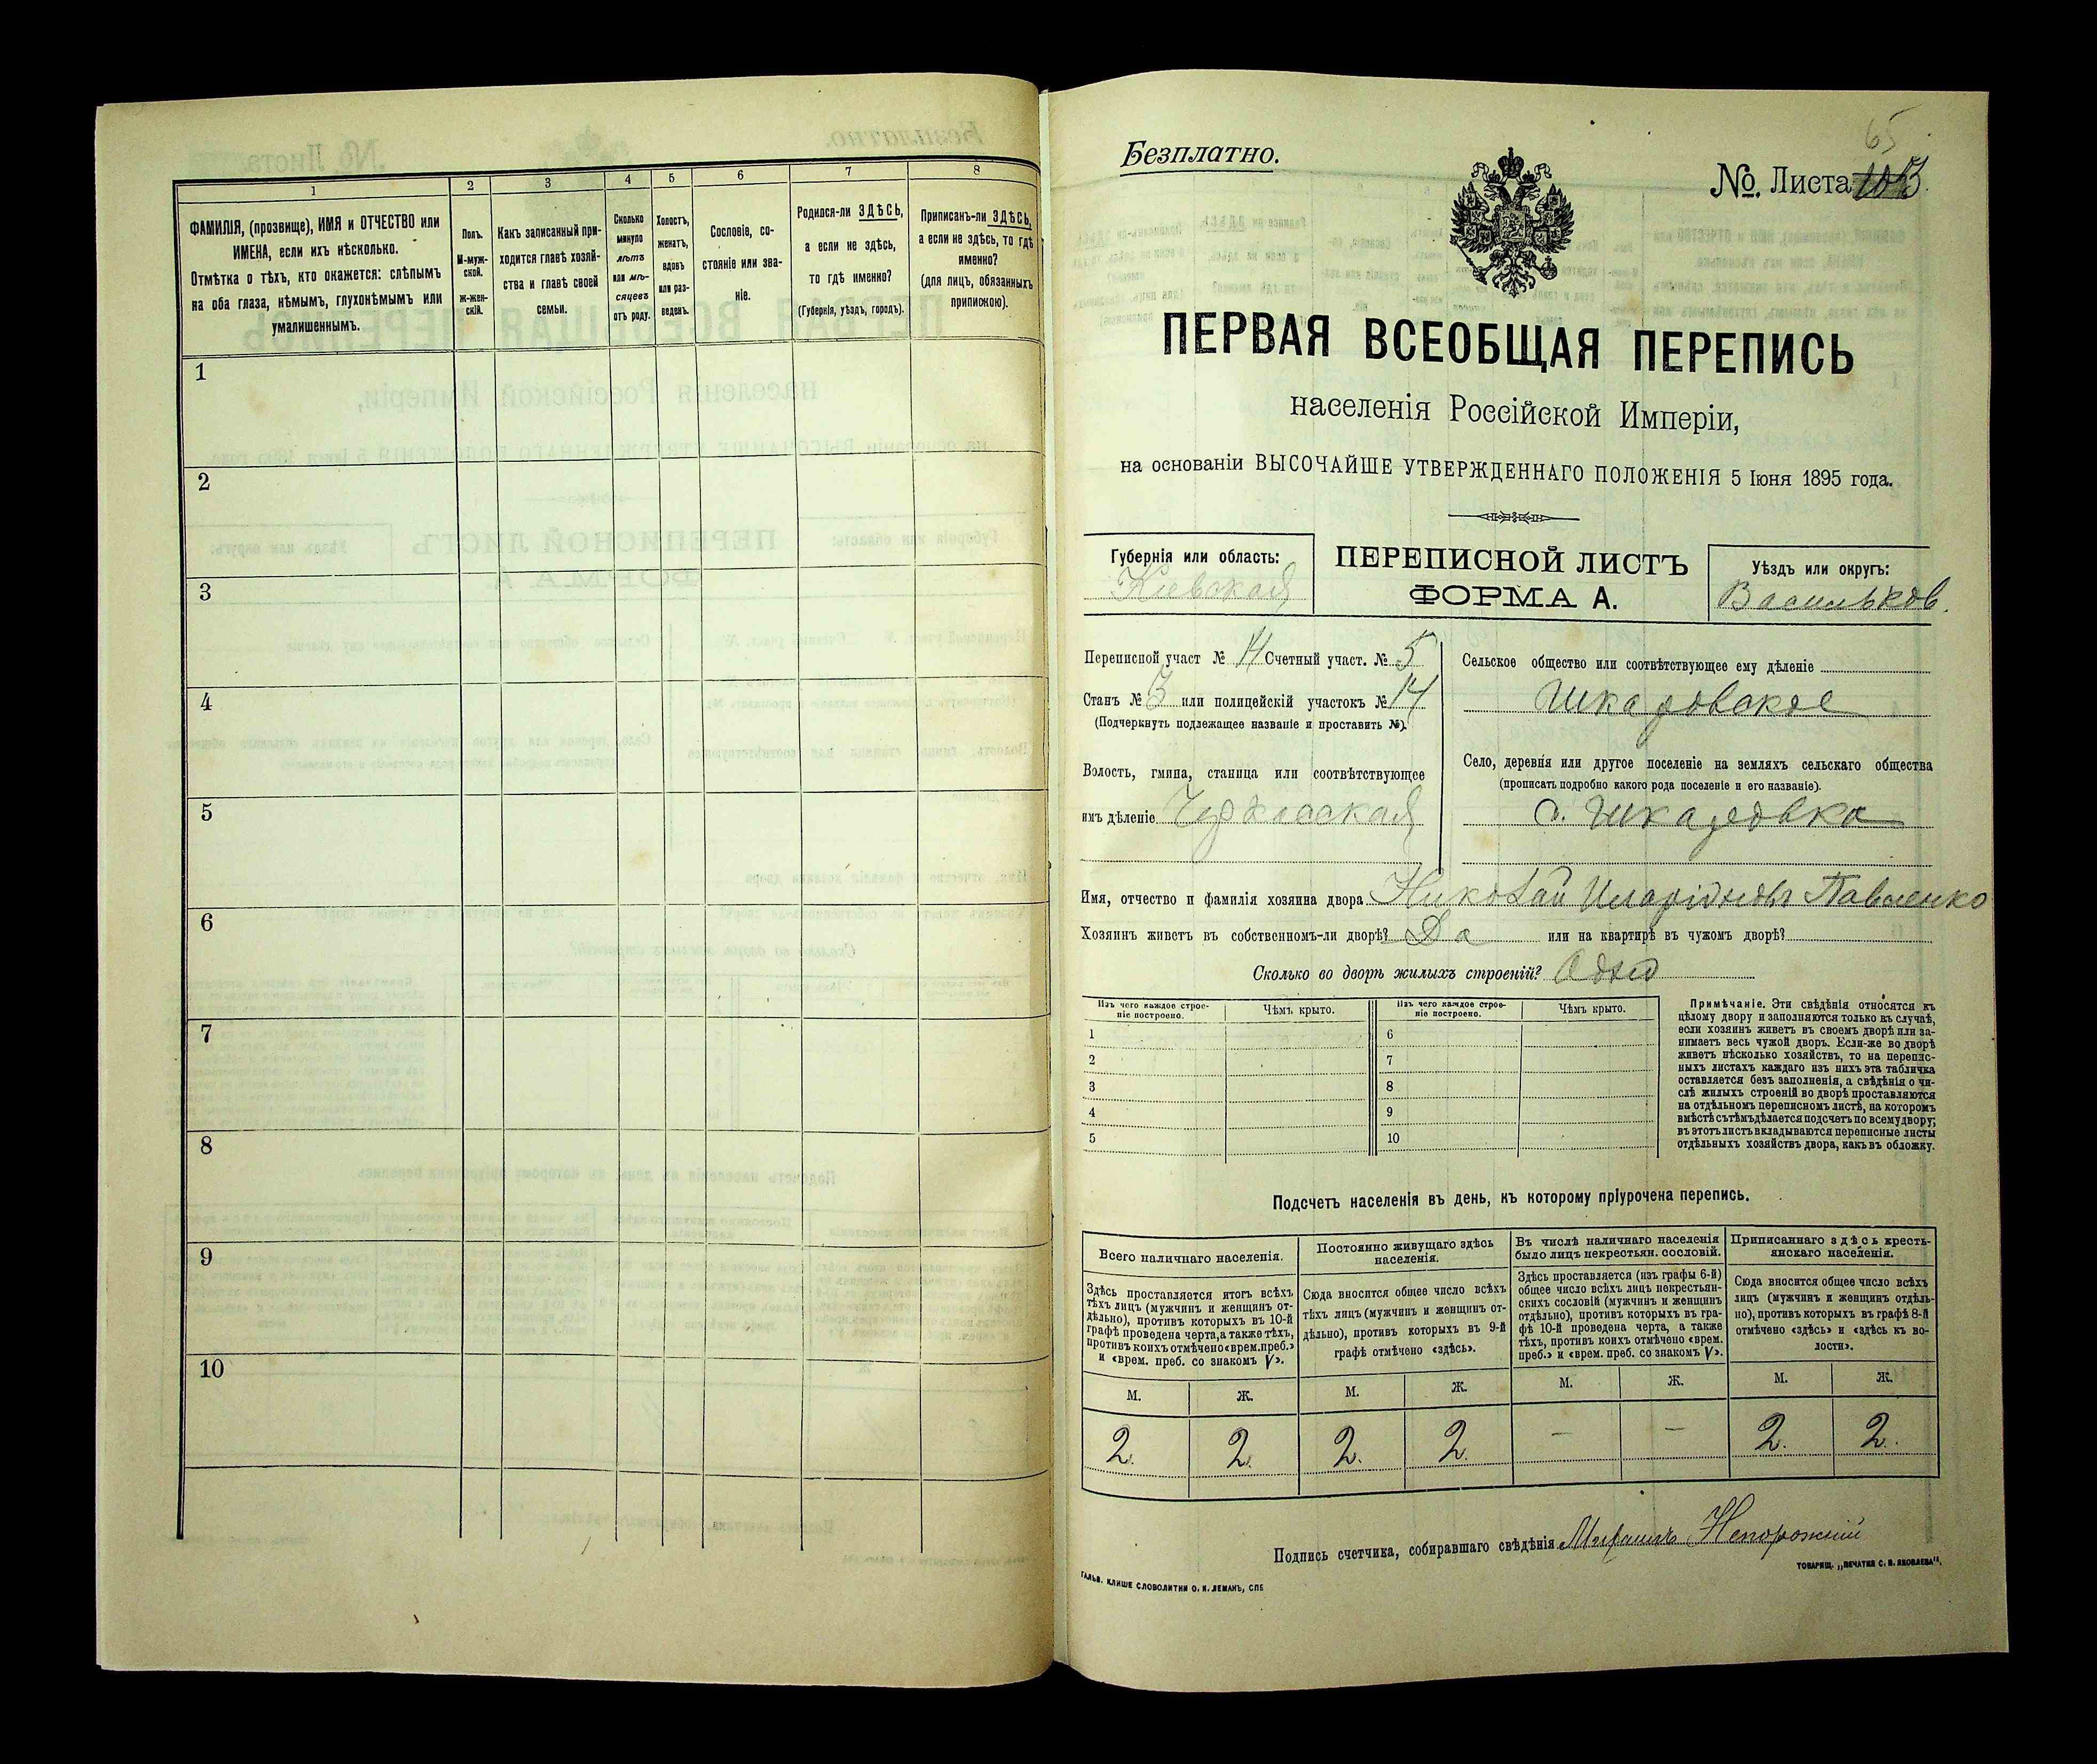 1
2
3
4
5
6
7
8
ФАМИЛІЯ, (прозвище), ИМЯ и ОТЧЕСТВО или
ИМЕНА, если ихъ нѣсколько.
Отмѣтка о тѣхъ, кто окажется: слѣпымъ
на оба глаза, нѣмымъ, глухонѣмымъ или
умалишеннымъ.
Полъ.
М-муж-
ской.
Ж-жен-
скій.
Какъ записанный при-
ходится главѣ хозяй-
ства и главѣ своей
семьи.
Сколько
минуло
лѣтъ
или мѣ-
сяцевъ
отъ роду.
Холостъ,
женатъ,
вдовъ
или раз-
веденъ.
Сословіе, со-
стояніе или зва-
ніе.
Родился-ли ЗДѢСЬ,
а если не здѣсь,
то гдѣ именно?
(Губернія, уѣздъ, городъ).
Приписанъ-ли ЗДѢСЬ,
а если не здѣсь, то гдѣ
именно?
(для лицъ, обязанныхъ
припиской).
1
2
3
4
5
6
7
8
9
10
65
Безплатно.
№. Листа
ПЕРВАЯ ВСЕОБЩАЯ ПЕРЕПИСЬ
населенія Россійской Имперіи,
на основаніи ВЫСОЧАЙШЕ УТВЕРЖДЕННАГО ПОЛОЖЕНІЯ 5 Іюня 1895 года.
Губернія или область:
Кіевская
ПЕРЕПИСНОЙ ЛИСТЪ
ФОРМА А.
Уѣздъ или округъ:
Васильков.
Переписной участ № 14 Счетный участ. № 5
Станъ № 3 или полицейскій участокъ № 14
(Подчеркнуть подлежащее названіе и проставить №).
Волость, гмина, станица или соотвѣтствующее
имъ дѣленіе
Сельское общество или соотвѣтствующее ему дѣленіе
Шкаровское
Село, деревня или другое поселеніе на земляхъ сельскаго общества
(прописать подробно какого рода поселеніе и его названіе).
с. Шкаровка
Имя, отчество и фамилія хозяина двора Николай Иларіоновъ Павленко
Хозяинъ живетъ въ собственномъ-ли дворѣ? Да или на квартирѣ въ чужомъ дворѣ?
Сколько во дворѣ жилыхъ строеній? Одно
Изъ чего каждое строе-
ніе построено.
Чѣмъ крыто.
Изъ чего каждое строе-
ніе построено.
Чѣмъ крыто.
1
2
3
4
5
6
7
8
9
10
Примѣчаніе. Эти свѣдѣнія относятся къ
цѣлому двору и заполняются только въ случаѣ,
если хозяинъ живетъ въ своемъ дворѣ или за-
нимаетъ весь чужой дворъ. Если-же во дворѣ
живетъ нѣсколько хозяйствъ, то на перепис-
ныхъ листахъ каждаго изъ нихъ эта табличка
оставляется безъ заполненія, а свѣдѣнія о чи-
слѣ жилыхъ строеній во дворѣ проставляются
на отдѣльномъ переписномъ листѣ, на которомъ
вмѣстѣ съ тѣмъ дѣлается подсчетъ по всему двору;
въ этотъ листъ вкладываются переписные листы
отдѣльныхъ хозяйствъ двора, какъ въ обложку.
Подсчетъ населенія въ день, къ которому пріурочена перепись.
Всего наличнаго населенія.
Постоянно живущаго здѣсь
населенія.
Въ числѣ наличнаго населенія
было лицъ некрестьян. сословій.
Приписаннаго здѣсь кресть-
янскаго населенія.
Здѣсь проставляется итогъ всѣхъ
тѣхъ лицъ (мужчинъ и женщинъ от-
дѣльно), противъ которыхъ въ 10-й
графѣ проведена черта, а также тѣхъ,
противъ коихъ отмѣчено «врем. преб.»
и «врем. преб. со знакомъ V».
Сюда вносится общее число всѣхъ
тѣхъ лицъ (мужчинъ и женщинъ от-
дѣльно), противъ которыхъ въ 9-й
графѣ отмѣчено «здѣсь».
Здѣсь проставляется (изъ графы 6-й)
общее число всѣхъ лицъ некрестьян-
скихъ сословій (мужчинъ и женщинъ
отдѣльно), противъ которыхъ въ гра-
фѣ 10-й проведена черта, а также
тѣхъ, противъ коихъ отмѣчено «врем.
преб.» и «врем. преб. со знакомъ V».
Сюда вносится общее число всѣхъ
лицъ (мужчинъ и женщинъ отдѣль-
но), противъ которыхъ въ графѣ 8-й
отмѣчено «здѣсь» и «здѣсь къ во-
лости».
М. Ж. М. Ж. М. Ж. М. Ж.
2. 2. 2. 2. — — 2. 2.
Подпись счетчика, собиравшаго свѣдѣнія Михаилъ Непорожній
ГАЛЬВ. КЛИШЕ СЛОВОЛИТНИ О. И. ЛЕМАНЪ, СПБ
ТОВАРИЩ. „ПЕЧАТНЯ С. П. ЯКОВЛЕВА".